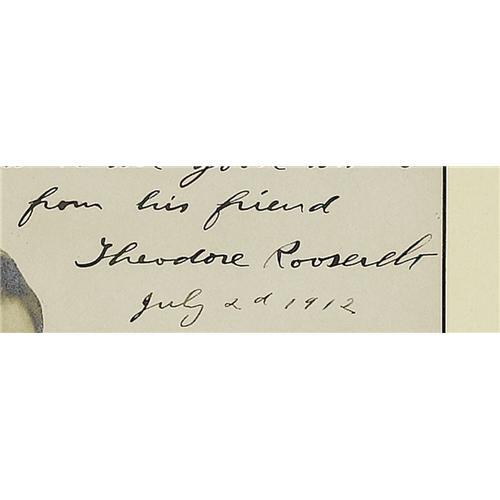 from his friend
Theodore Roosevelt
July 2d 1912